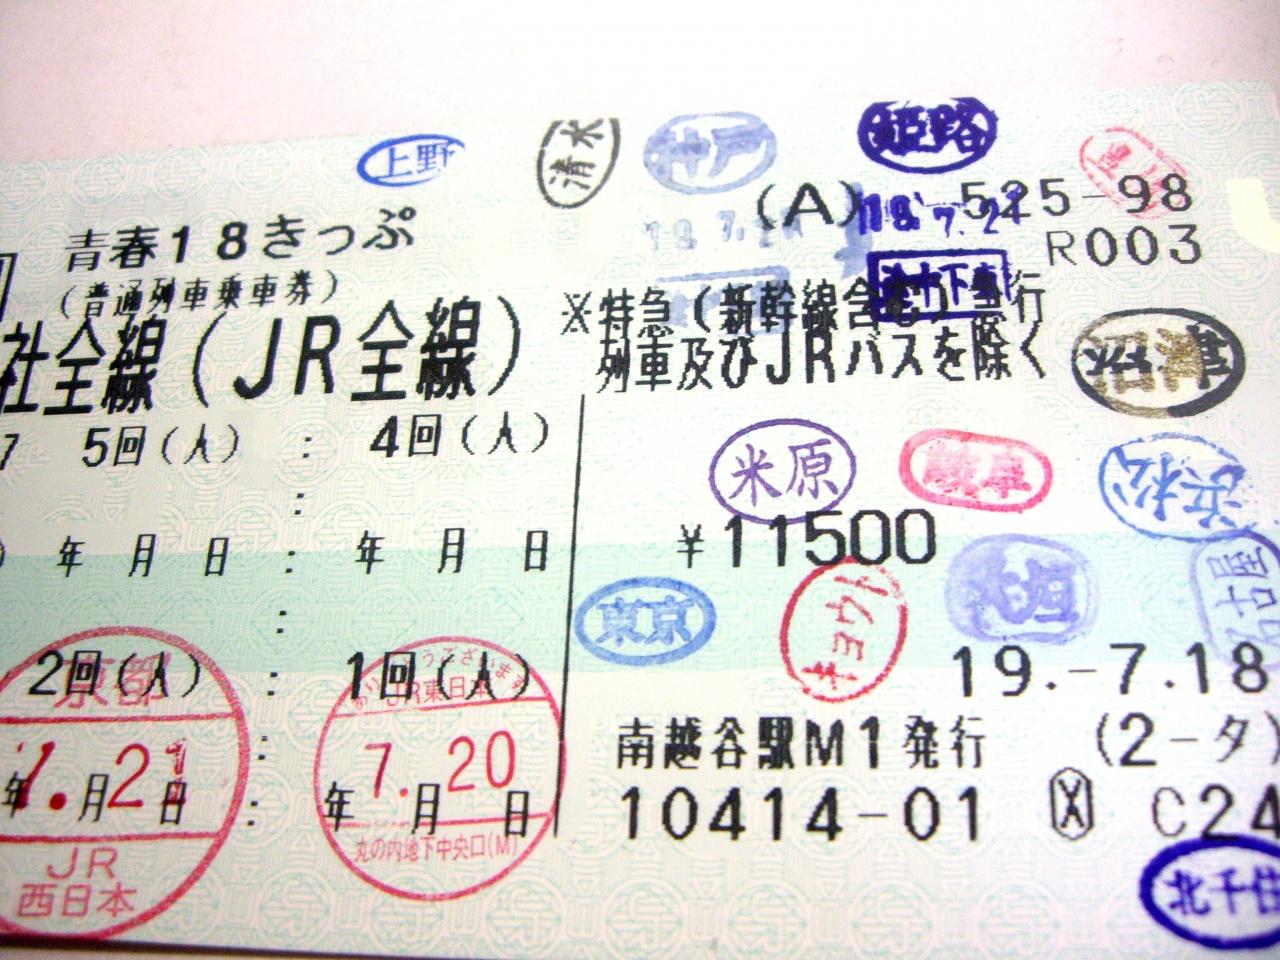 上野
清水
神戸
姫路
(A) 525-98
19.7.21
青春18きっぷ
R003
(普通列車乗車券)
途中下車
社全線(JR全線)
※特急(新幹線含む)急行
列車及びJRバスを除く
7 5回(人) : 4回(人)
:
米原
岐阜
浜松
¥11500
年 月 日 : 年 月 日
:
東京
キョウト
2回(人) : 1回(人)
19.-7.18
京都
JR東日本
南越谷駅M1発行 (2-タ)
7.21
7.20
年 月 日 : 年 月 日
10414-01 C24
丸の内地下中央口(M)
JR
西日本
北千住